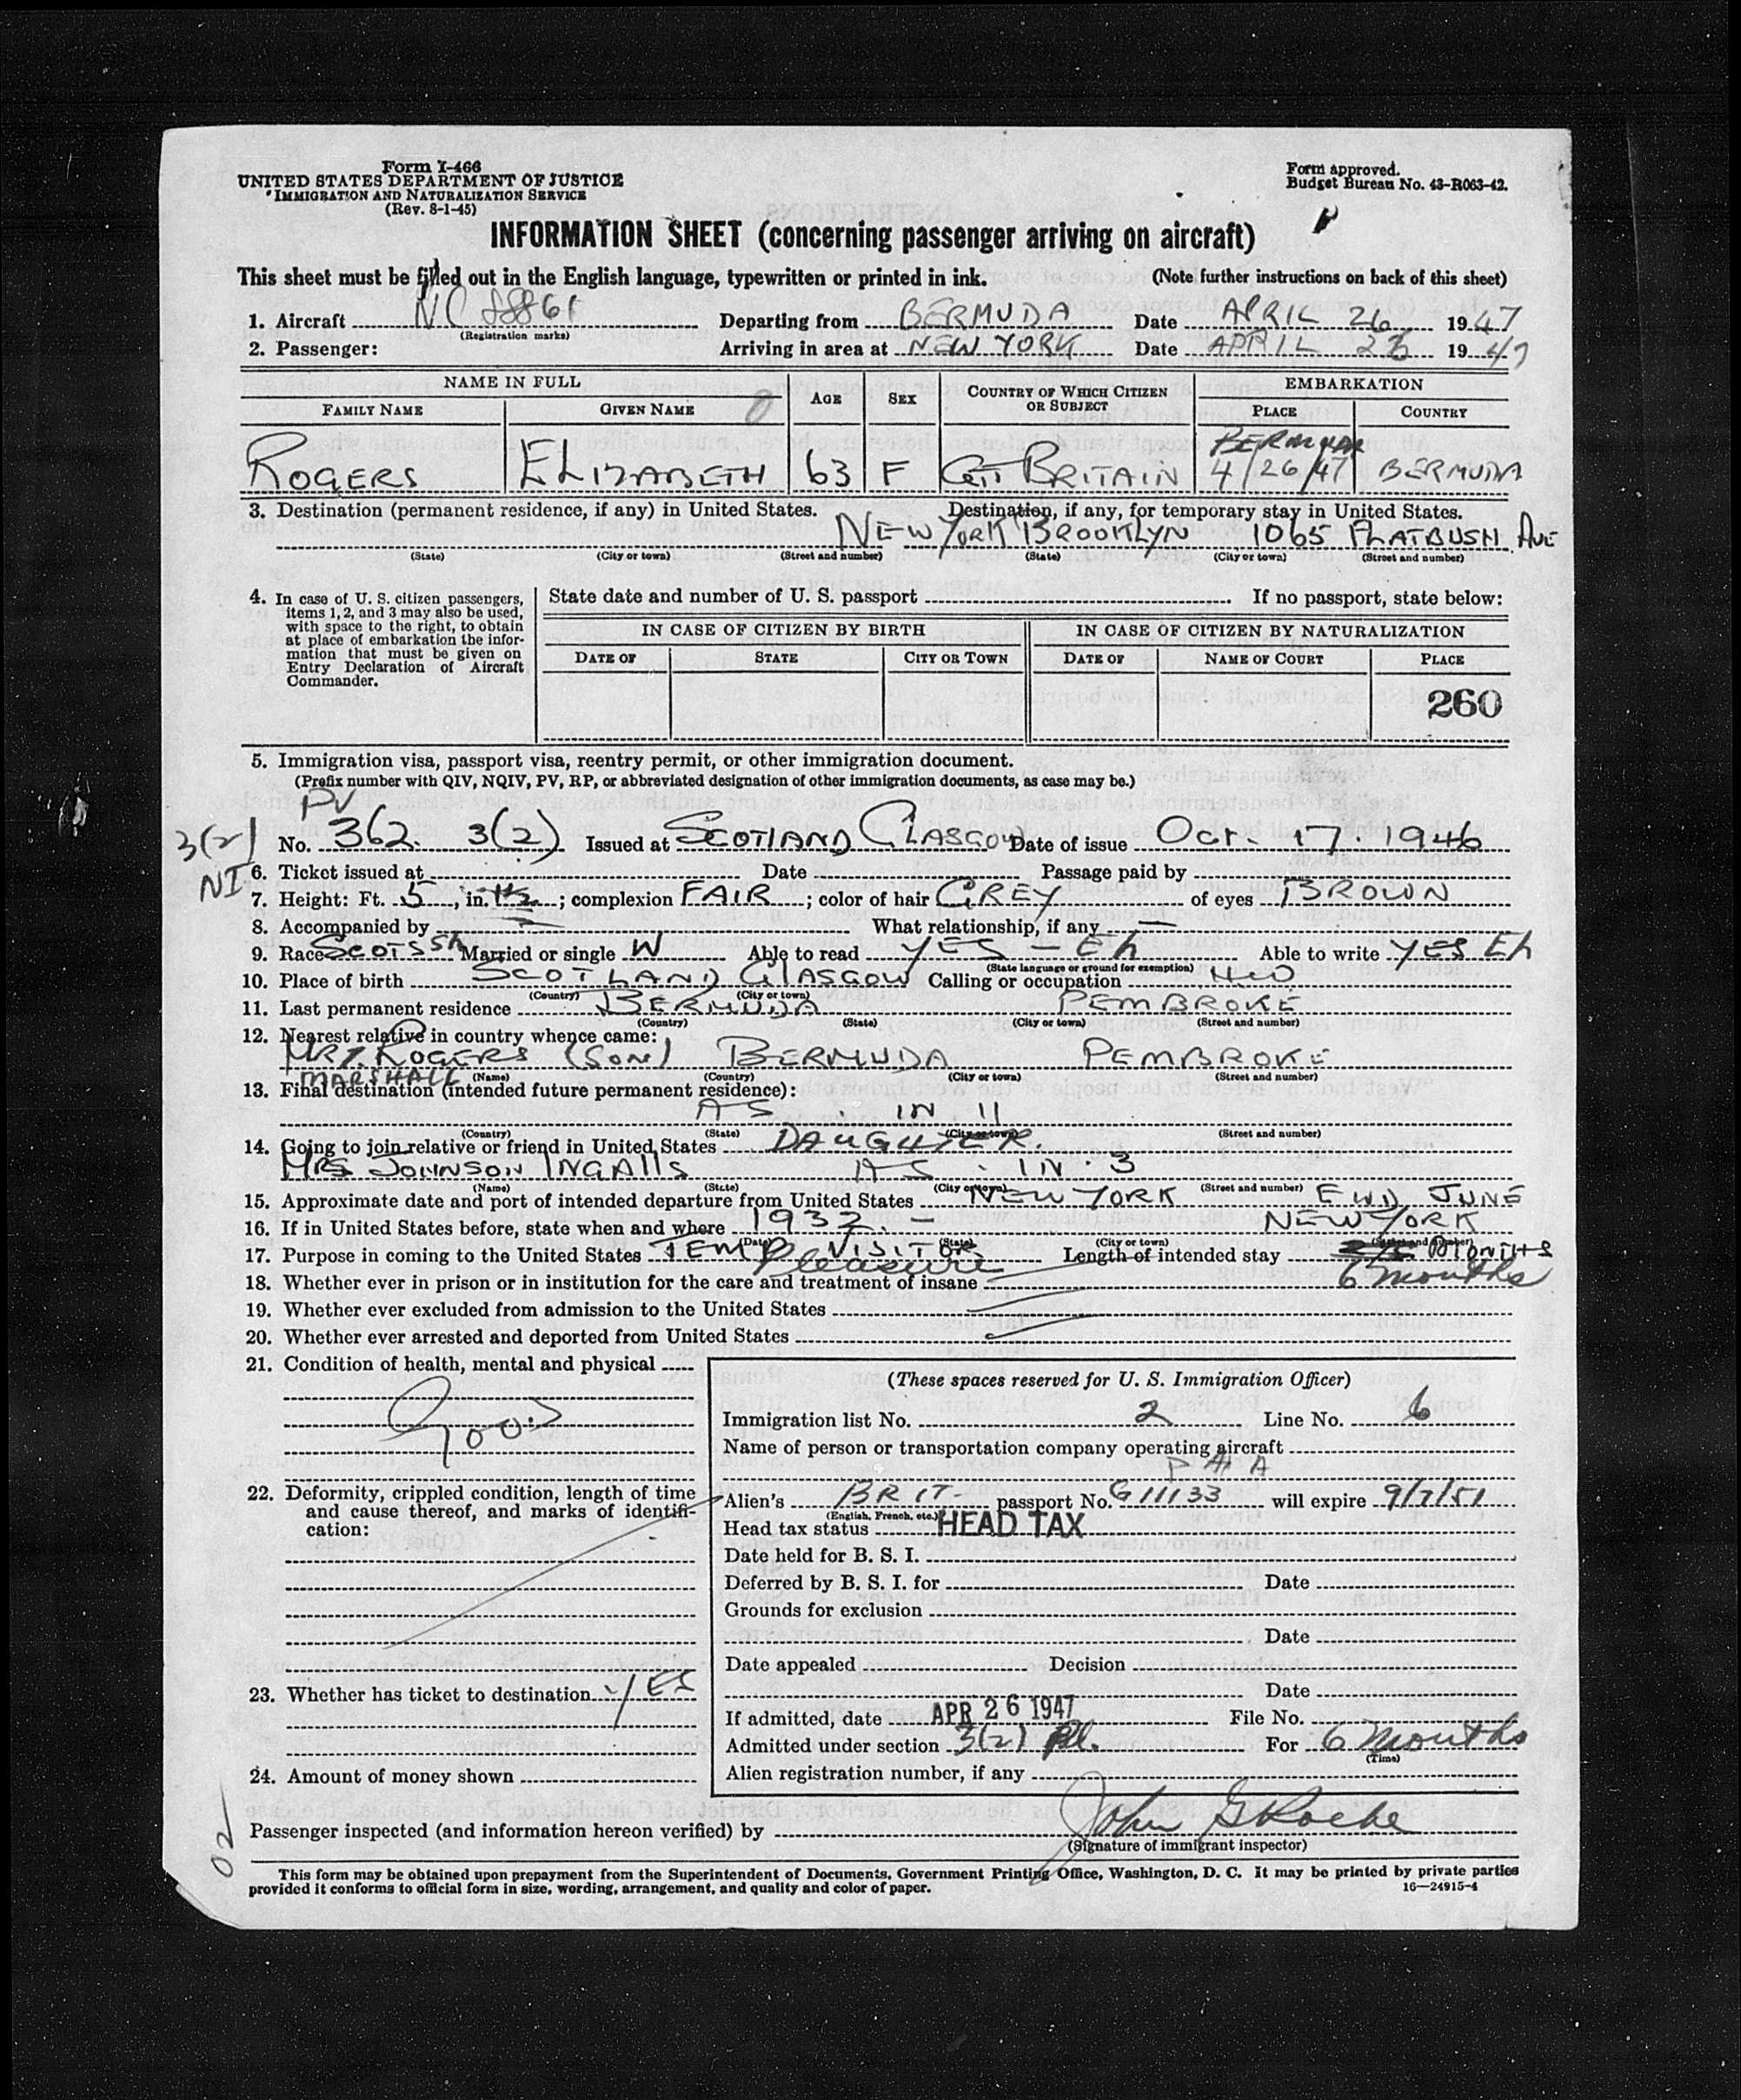 Form I-466
UNITED STATES DEPARTMENT OF JUSTICE
IMMIGRATION AND NATURALIZATION SERVICE
(Rev. 8-1-45)
Form approved.
Budget Bureau No. 43-R063-42.
INFORMATION SHEET (concerning passenger arriving on aircraft)
This sheet must be filled out in the English language, typewritten or printed in ink. (Note further instructions on back of this sheet)
1. Aircraft NC 88861 Departing from BERMUDA Date APRIL 26 1947
(Registration marks)
2. Passenger: Arriving in area at NEW YORK Date APRIL 26 1947
NAME IN FULL AGE SEX COUNTRY OF WHICH CITIZEN OR SUBJECT EMBARKATION
FAMILY NAME GIVEN NAME PLACE COUNTRY
BERMUDA
ROGERS ELIZABETH 63 F GT BRITAIN 4/26/47 BERMUDA
3. Destination (permanent residence, if any) in United States. Destination, if any, for temporary stay in United States.
NEW YORK BROOKLYN 1065 FLATBUSH AVE
(State) (City or town) (Street and number) (State) (City or town) (Street and number)
4. In case of U. S. citizen passengers, items 1, 2, and 3 may also be used, with space to the right, to obtain at place of embarkation the information that must be given on Entry Declaration of Aircraft Commander.
State date and number of U. S. passport If no passport, state below:
IN CASE OF CITIZEN BY BIRTH IN CASE OF CITIZEN BY NATURALIZATION
DATE OF STATE CITY OR TOWN DATE OF NAME OF COURT PLACE
260
5. Immigration visa, passport visa, reentry permit, or other immigration document.
(Prefix number with QIV, NQIV, PV, RP, or abbreviated designation of other immigration documents, as case may be.)
PV
3(2) No. 362. 3(2) Issued at SCOTLAND GLASGOW Date of issue Oct. 17. 1946
NI 6. Ticket issued at Date Passage paid by
7. Height: Ft. 5, in. 1½; complexion FAIR; color of hair GREY of eyes BROWN
8. Accompanied by — What relationship, if any —
9. Race SCOTSSH Married or single W Able to read YES - Eh Able to write YES Eh
(State language or ground for exemption)
10. Place of birth SCOTLAND GLASGOW Calling or occupation H.W
(Country) (City or town)
11. Last permanent residence BERMUDA PEMBROKE
(Country) (State) (City or town) (Street and number)
12. Nearest relative in country whence came:
MR T. ROGERS (SON) BERMUDA PEMBROKE
MARSHALL (Name) (Country) (City or town) (Street and number)
13. Final destination (intended future permanent residence):
AS . IN 11
(Country) (State) (City or town) (Street and number)
14. Going to join relative or friend in United States DAUGHTER.
MRS JOHNSON INGAlls AS . IN . 3
(Name) (State) (City or town) (Street and number)
15. Approximate date and port of intended departure from United States NEW YORK END JUNE
16. If in United States before, state when and where 1932. - NEW YORK
(Date) (State) (City or town) (Street and number)
17. Purpose in coming to the United States TEMP VISITOR Length of intended stay MONTHS
Pleasure 6 months
18. Whether ever in prison or in institution for the care and treatment of insane
19. Whether ever excluded from admission to the United States
20. Whether ever arrested and deported from United States
21. Condition of health, mental and physical
Good
22. Deformity, crippled condition, length of time and cause thereof, and marks of identification:
23. Whether has ticket to destination YES
24. Amount of money shown
(These spaces reserved for U. S. Immigration Officer)
Immigration list No. 2 Line No. 6
Name of person or transportation company operating aircraft
P A A
Alien's BRIT- passport No. G 11133 will expire 9/7/51
(English, French, etc.)
Head tax status HEAD TAX
Date held for B. S. I.
Deferred by B. S. I. for Date
Grounds for exclusion
Date
Date appealed Decision
Date
If admitted, date APR 26 1947 File No.
Admitted under section 3(2) Pl. For 6 months
(Time)
Alien registration number, if any
02
Passenger inspected (and information hereon verified) by John G Roche
(Signature of immigrant inspector)
This form may be obtained upon prepayment from the Superintendent of Documents, Government Printing Office, Washington, D. C. It may be printed by private parties
provided it conforms to official form in size, wording, arrangement, and quality and color of paper. 16—24915-4